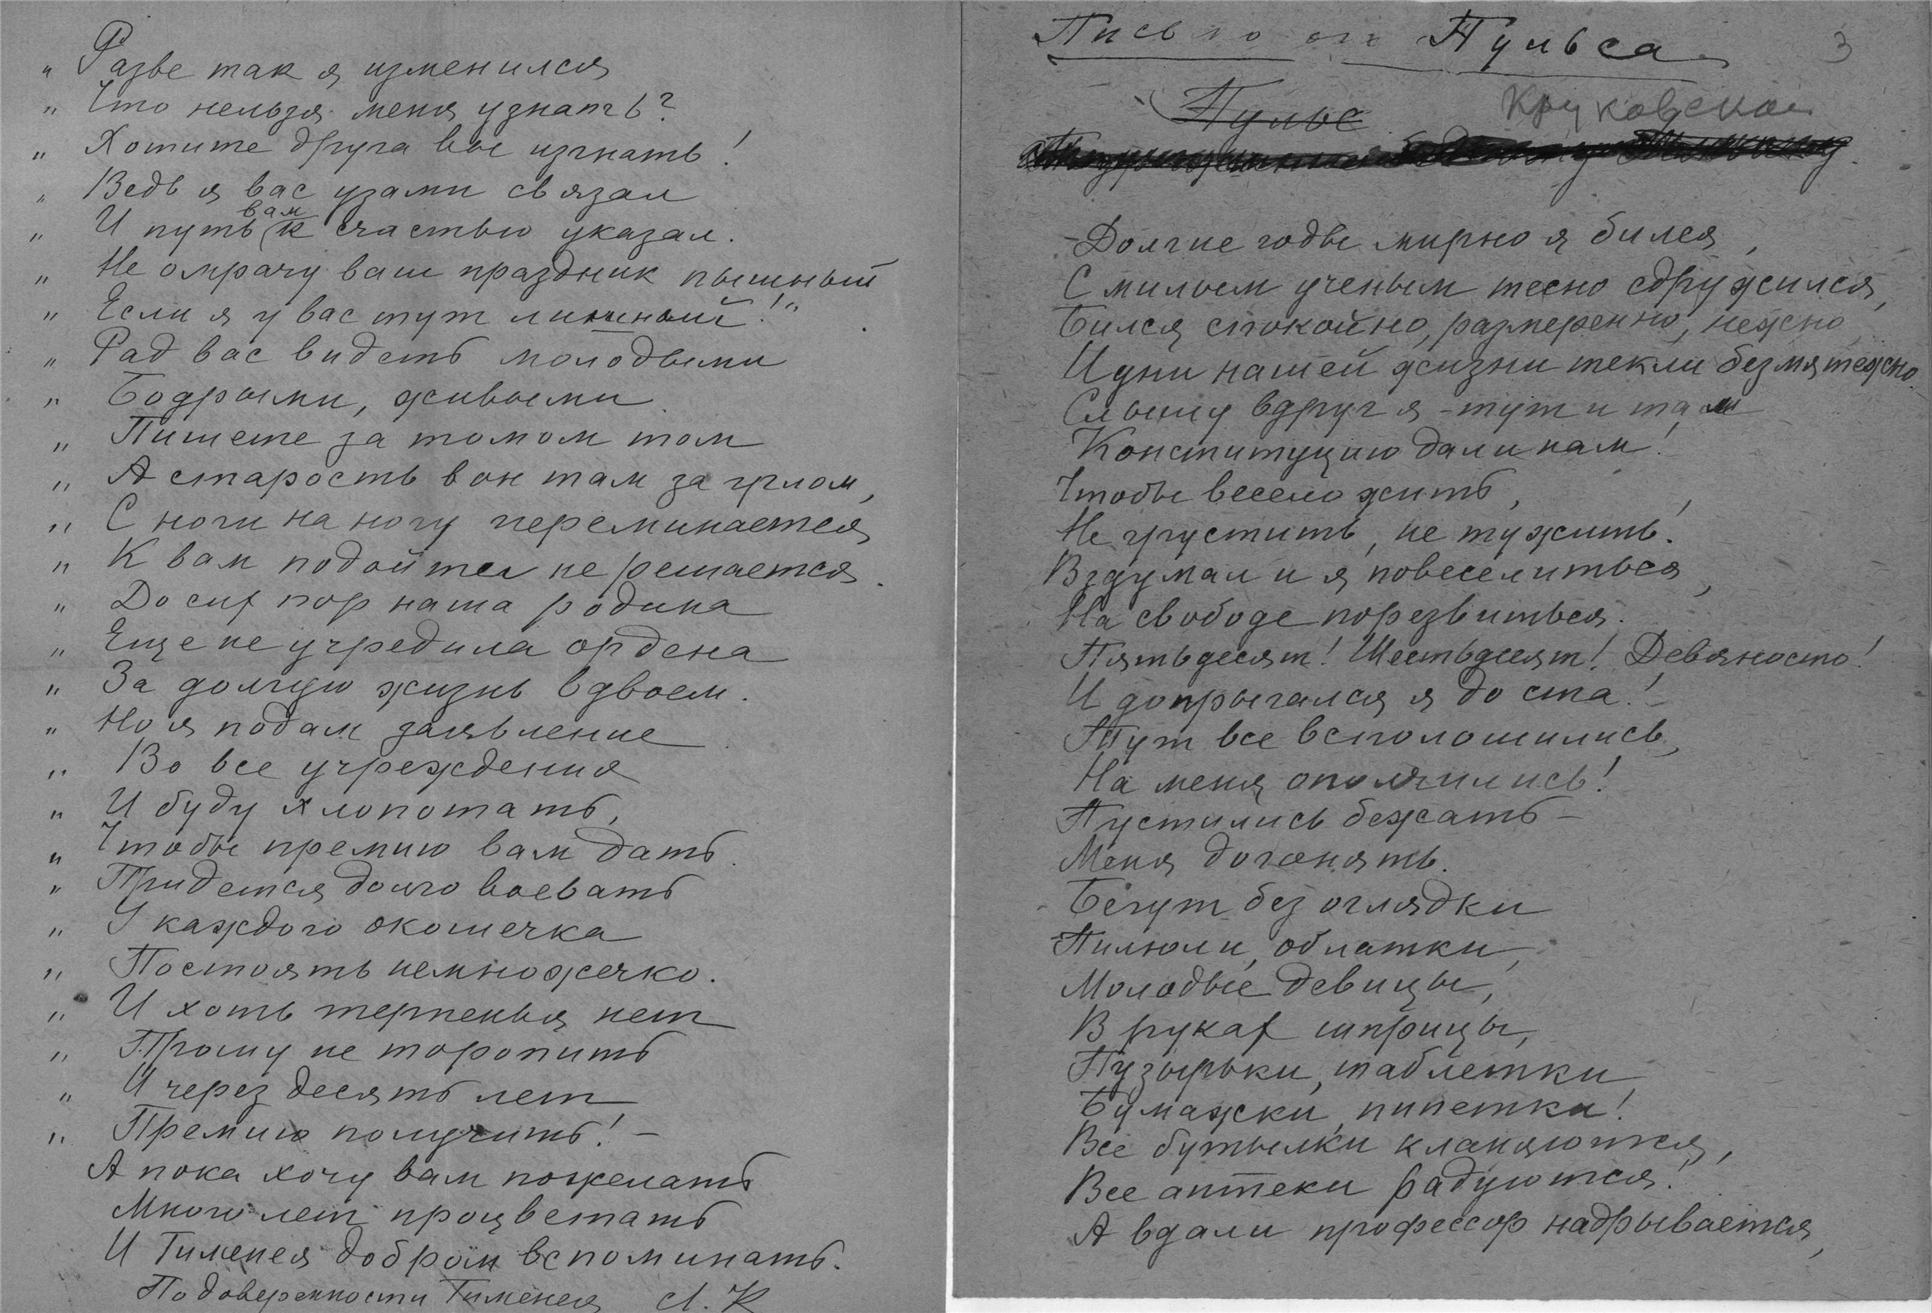 „ Разве так я изменился
„ Что нельзя меня узнать?
„ Хотите друга вы изгнать!
„ Ведь я вас узами связал
вам
„ И путь к счастью указал.
„ Не омрачу ваш праздник пышный
„ Если я у вас тут лишний!"
„ Рад вас видеть молодыми
„ Бодрыми, живыми
„ Пишете за томом том
„ А старость вон там за углом,
„ С ноги на ногу переминается
„ К вам подойти не решается.
„ До сих пор наша родина
„ Еще не учредила ордена
„ За долгую жизнь вдвоем.
„ Но я подам заявление
„ Во все учреждения
„ И буду хлопотать,
„ Чтобы премию вам дать.
„ Придется долго воевать
„ У каждого окошечка
„ Постоять немножечко.
„ И хоть терпенья нет
„ Прошу не торопить
„ И через десять лет
„ Премию получить! –
А пока хочу вам пожелать
Много лет процветать
И Гименея добром вспоминать.
По доверенности Гименея Л. К
Письмо от Пульса
3
Пульс
Круковской
Долгие годы мирно я бился,
С милым ученым тесно сдружился,
Бился спокойно, размеренно, нежно
И дни нашей жизни текли безмятежно.
Слышу вдруг я – тут и там
Конституцию дали нам!
Чтобы весело жить,
Не грустить, не тужить!
Вздумал и я повеселиться,
На свободе порезвиться.
Пятьдесят! Шестьдесят! Девяносто!
И допрыгался я до ста! –
Тут все всполошились,
На меня ополчились!
Пустились бежать –
Меня догонять.
Бегут без оглядки
Пилюли, облатки,
Молодые девицы,
В руках шприцы,
Пузырьки, таблетки
Бумажки, пипетки!
Все бутылки кланяются,
Все аптеки радуются!
А вдали профессор надрывается,